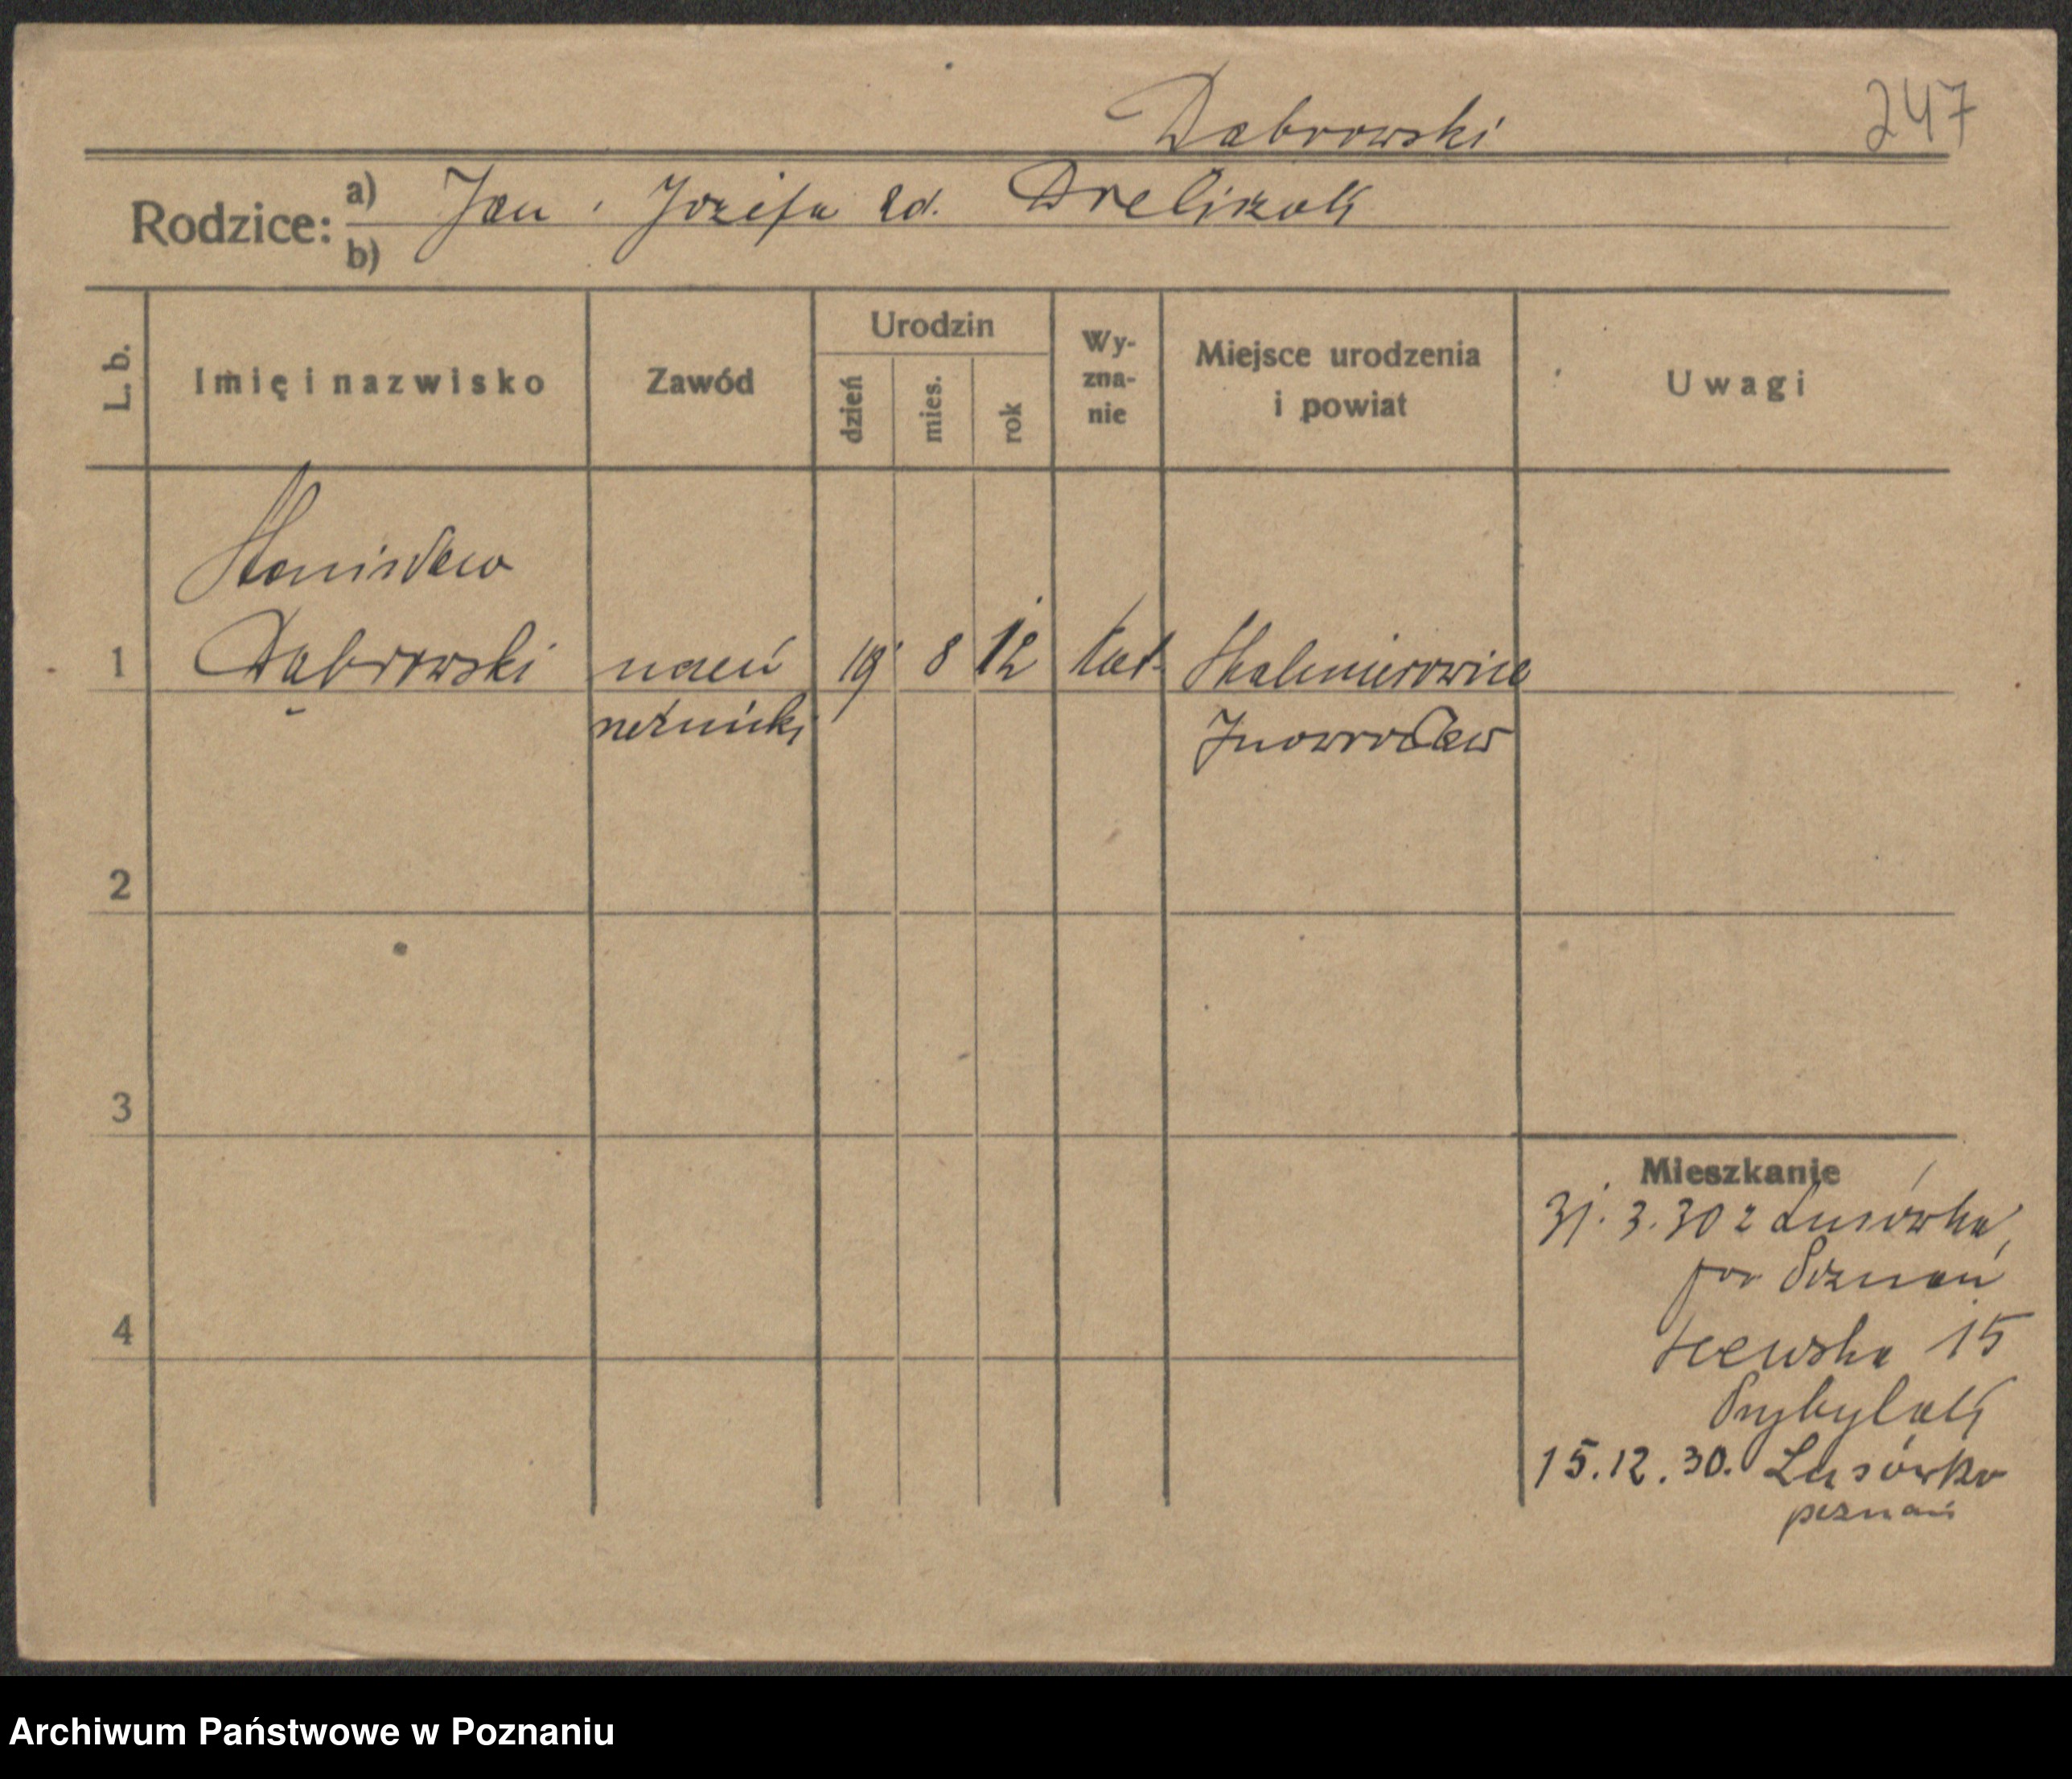 Dabrowski
247
Rodzice: a) Jan . Józefa zd. Drelizak
b)
L. b.
Imię i nazwisko
Zawód
Urodzin
dzień
mies.
rok
Wy-
zna-
nie
Miejsce urodzenia
i powiat
Uwagi
Stanisław
1 Dąbrowski uczeń 19 8 12 kat. Skalmierowice
rzeźnicki Inowrocław
2
3
4
Mieszkanie
31.3.30 z Lusówka,
pow Poznań
15
Przybylak
15.12.30. Lusówko
poznań
Archiwum Państwowe w Poznaniu